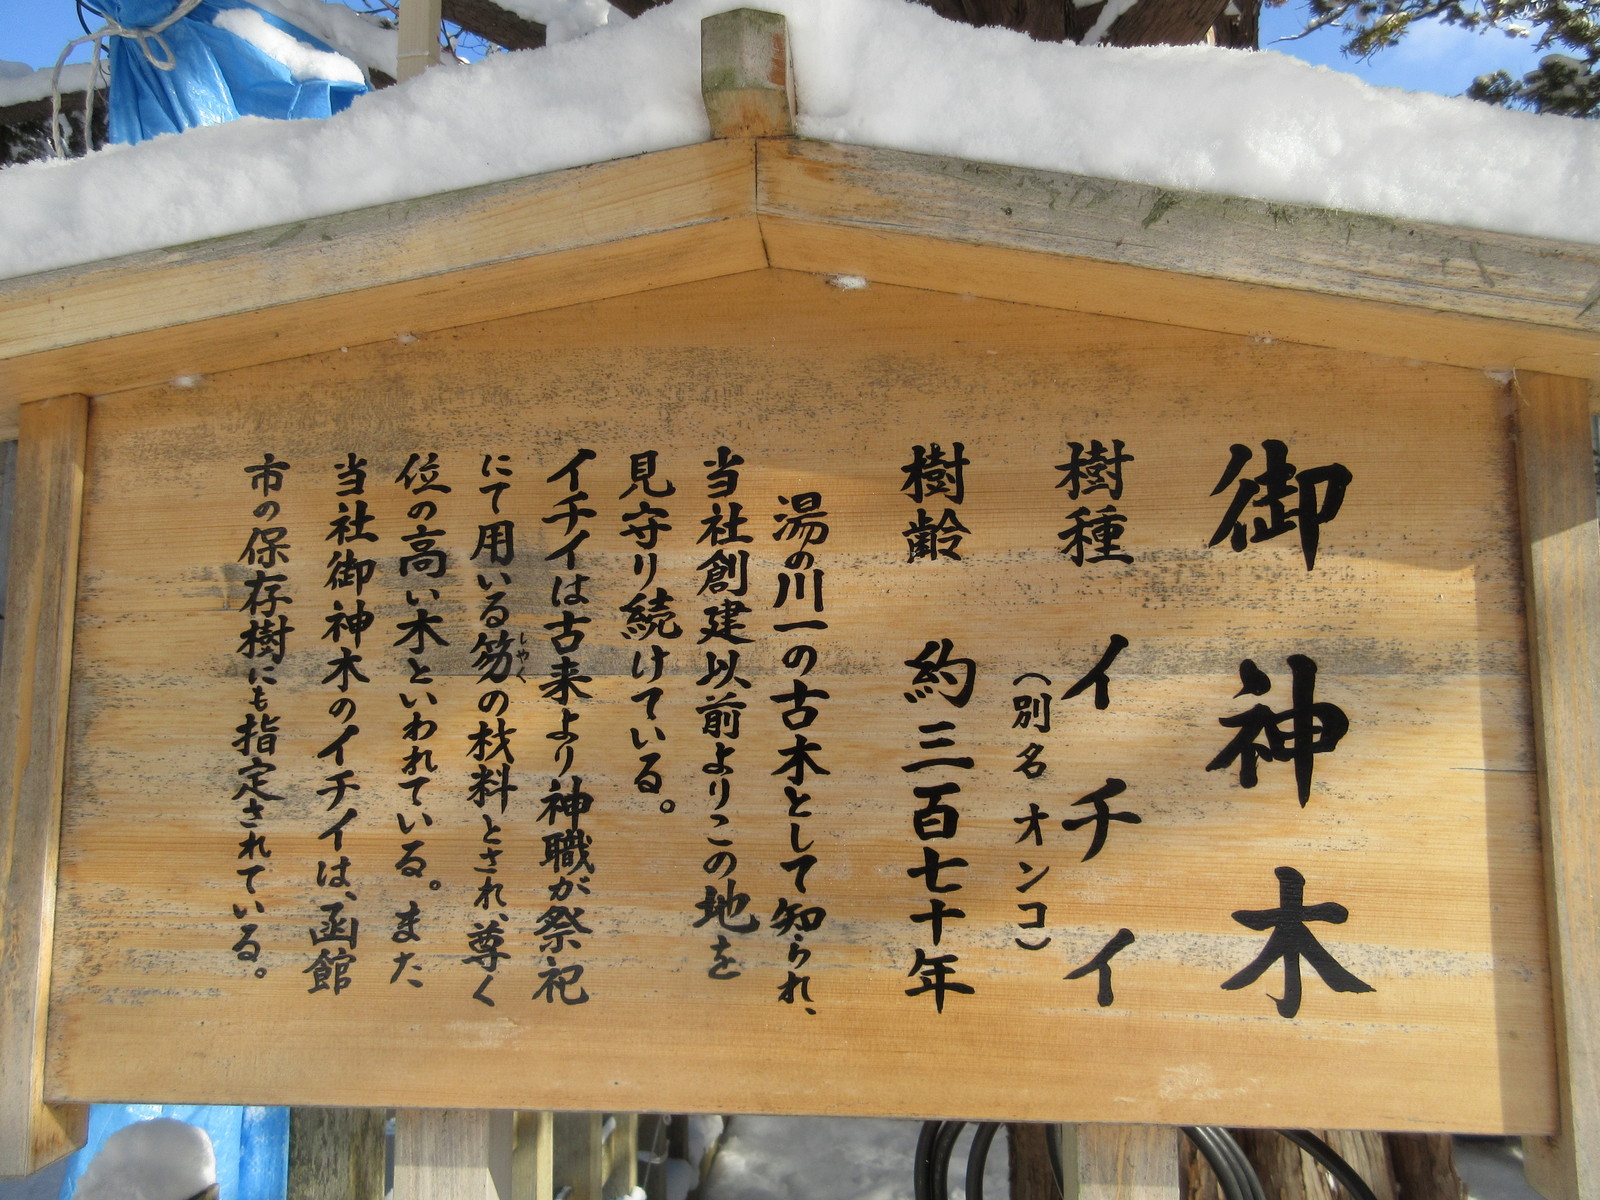 御神木
樹種 イチイ
(別名 オンコ)
樹齢 約三百七十年
湯の川一の古木として知られ、
当社創建以前よりこの地を
見守り続けている。
イチイは古来より神職が祭祀
にて用いる笏の材料とされ、尊く
しゃく
位の高い木といわれている。また
当社御神木のイチイは、函館
市の保存樹にも指定されている。